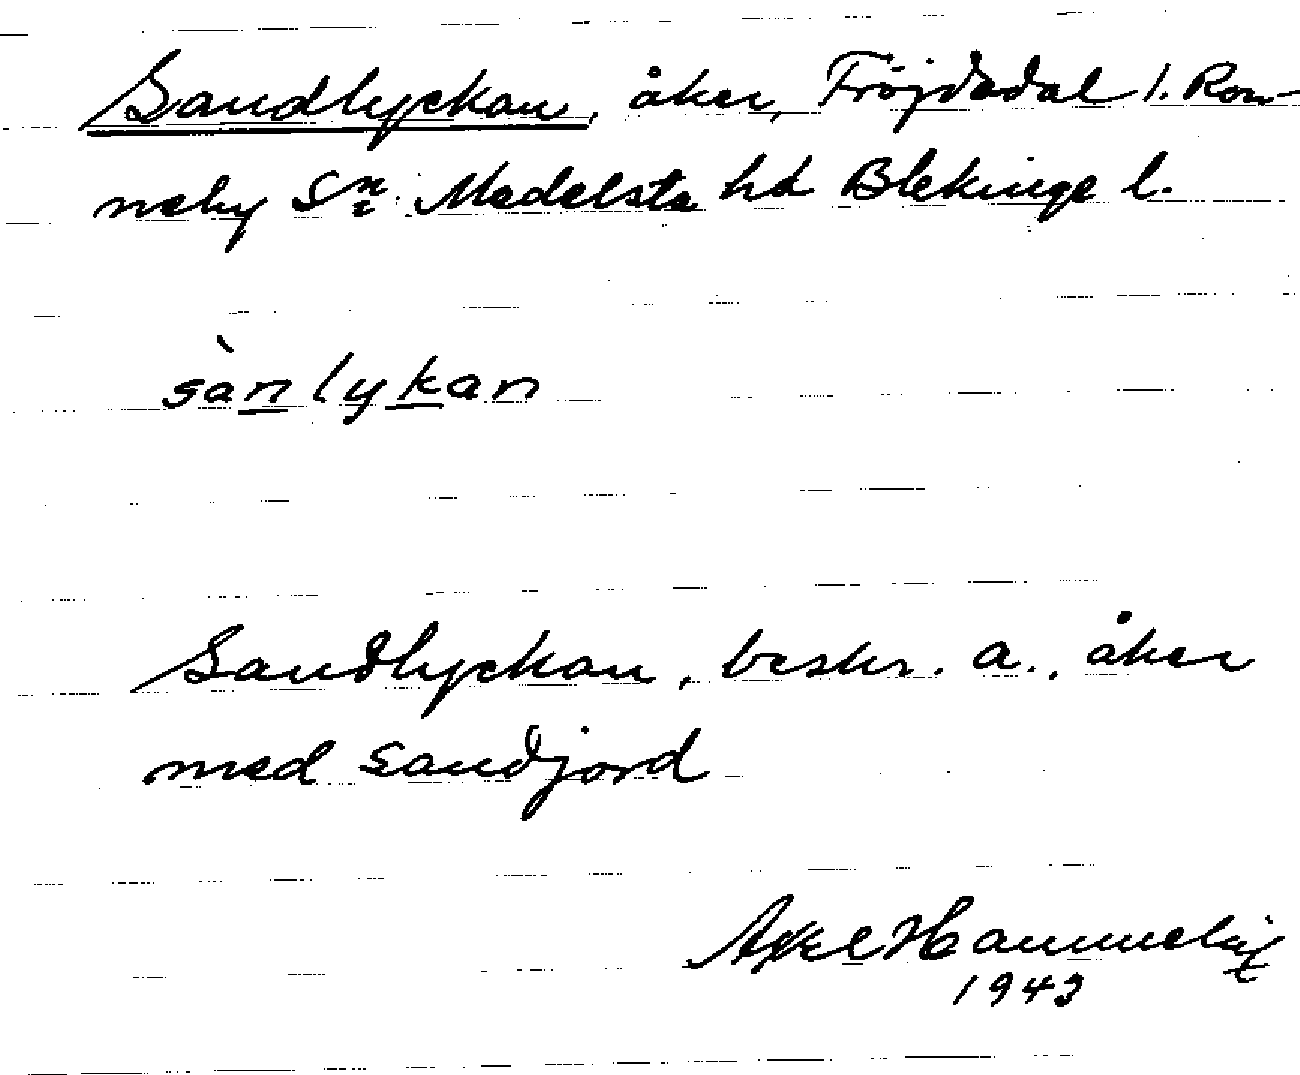 Sandlyckan, åker, Fröjdadal l. Ron-
neby Sn. Medelsta hd Blekinge l.
sànlykan
Sandlyckan, beskr. a., åker
med sandjord
Axel Hammelin
1943